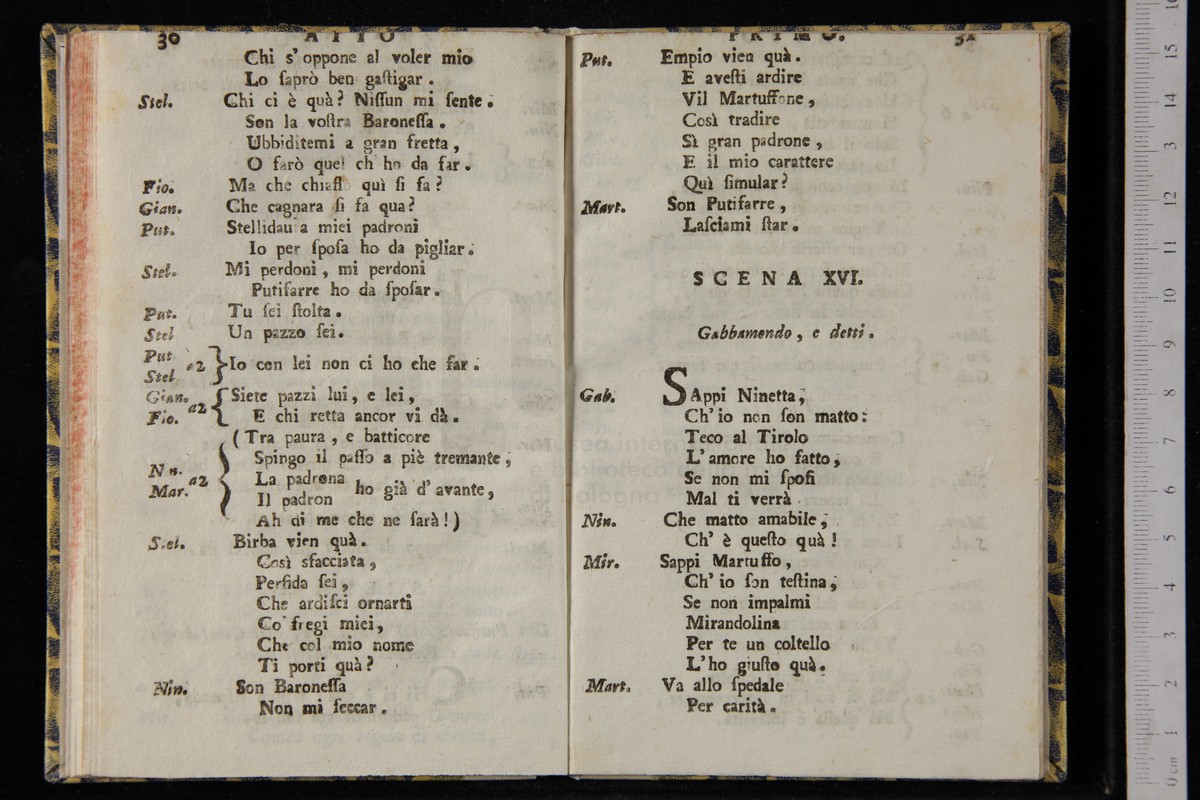 30 ATTO
Chi s' oppone al voler mio
Lo ſaprò ben gaſtigar.
Stel. Chi ci è quà? Niſſun mi ſente.
Son la voſtra Baroneſſa.
Ubbiditemi a gran fretta,
O farò quel ch' ho da far.
Fio. Ma che chiaſſo quì ſi fa?
Gian. Che cagnara ſi fa qua?
Put. Stellidaura miei padroni
Io per ſpoſa ho da pigliar.
Stel. Mi perdoni, mi perdoni
Putifarre ho da ſpoſar.
Put. Tu ſei ſtolta.
Stel Un pazzo ſei.
Put
Stel a2 } Io con lei non ci ho che far.
Gian.
Fio. a2 { Siete pazzi lui, e lei,
E chi retta ancor vi dà.
(Tra paura, e batticore
Spingo il paſſo a piè tremante,
Nin.
Mar. a2 { La padrona
Il padron ho già d' avante,
Ah di me che ne ſarà!)
Stel. Birba vien quà.
Così sfacciata,
Perfida ſei,
Che ardiſci ornarti
Co' fregi miei,
Che col mio nome
Ti porti quà?
Nin. Son Baroneſſa
Non mi ſeccar.
PRIMO. 31
Put. Empio vien quà.
E aveſti ardire
Vil Martuffone,
Così tradire
Sì gran padrone,
E il mio carattere
Quì ſimular?
Mart. Son Putifarre,
Laſciami ſtar.
SCENA XVI.
Gabbamendo, e detti.
Gab. SAppi Ninetta,
Ch' io non ſon matto:
Teco al Tirolo
L' amore ho fatto,
Se non mi ſpoſi
Mal ti verrà.
Nin. Che matto amabile,
Ch' è queſto quà!
Mir. Sappi Martuffo,
Ch' io ſon teſtina,
Se non impalmi
Mirandolina
Per te un coltello
L' ho giuſto quà.
Mart. Va allo ſpedale
Per carità.